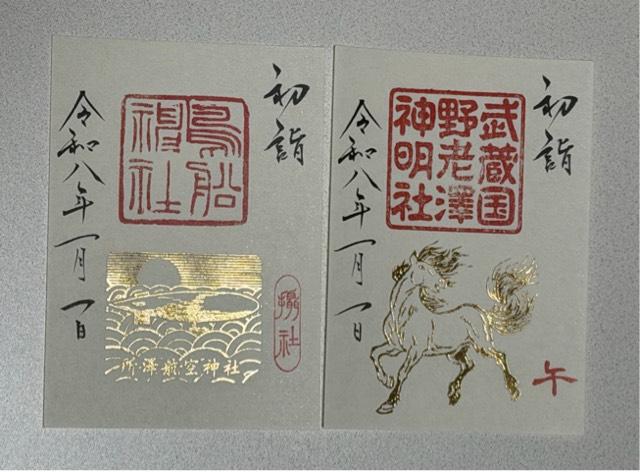 初詣
鳥船
神社
令和八年一月一日
所澤航空神社
攝社
初詣
武蔵国
野老澤
神明社
令和八年一月一日
午